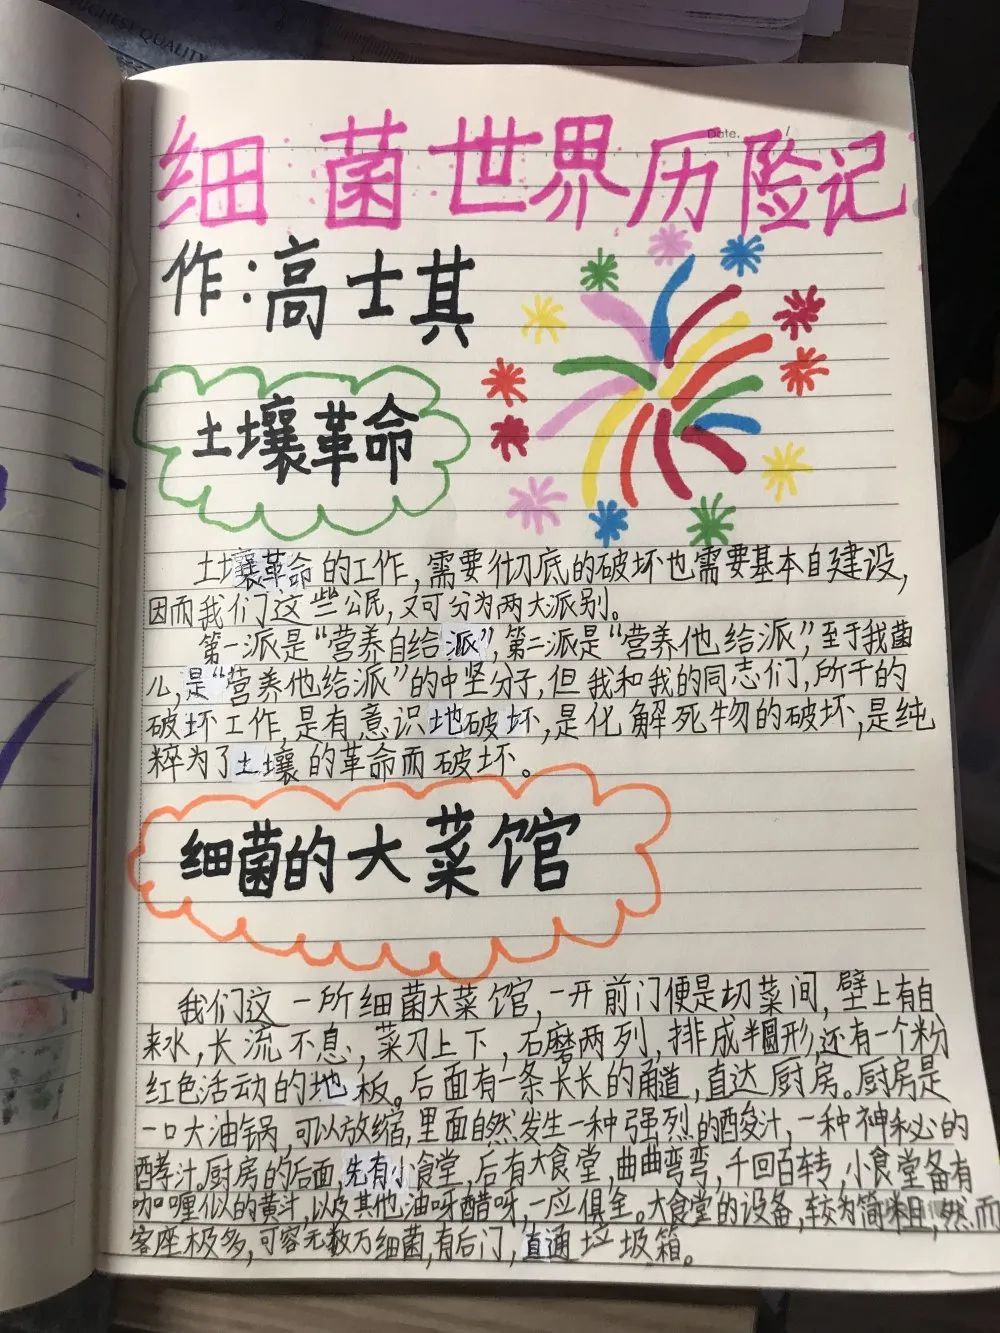 HIGHEST QUALITY
Date. /
细菌世界历险记
作:高士其
土壤革命
土壤革命的工作,需要彻底的破坏也需要基本自建设,
因而我们这些公民,又可分为两大派别。
第一派是“营养自给派”,第二派是“营养他给派”,至于我菌
儿,是“营养他给派”的中坚分子,但我和我的同志们,所干的
破坏工作,是有意识地破坏,是化解死物的破坏,是纯
粹为了土壤的革命而破坏。
细菌的大菜馆
我们这一所细菌大菜馆,一开前门便是切菜间,壁上有自
来水,长流不息,菜刀上下,石磨两列,排成半圆形,还有一个粉
红色活动的地板。后面有一条长长的甬道,直达厨房。厨房是
一口大油锅,可以放缩,里面自然发生一种强烈的酸汁,一种神秘的
酵汁。厨房的后面,先有小食堂,后有大食堂,曲曲弯弯,千回百转,小食堂备有
咖喱似的黄汁,以及其他油呀醋呀,一应俱全。大食堂的设备,较为简粗,然而
客座极多,可容无数万细菌,有后门,直通垃圾箱。